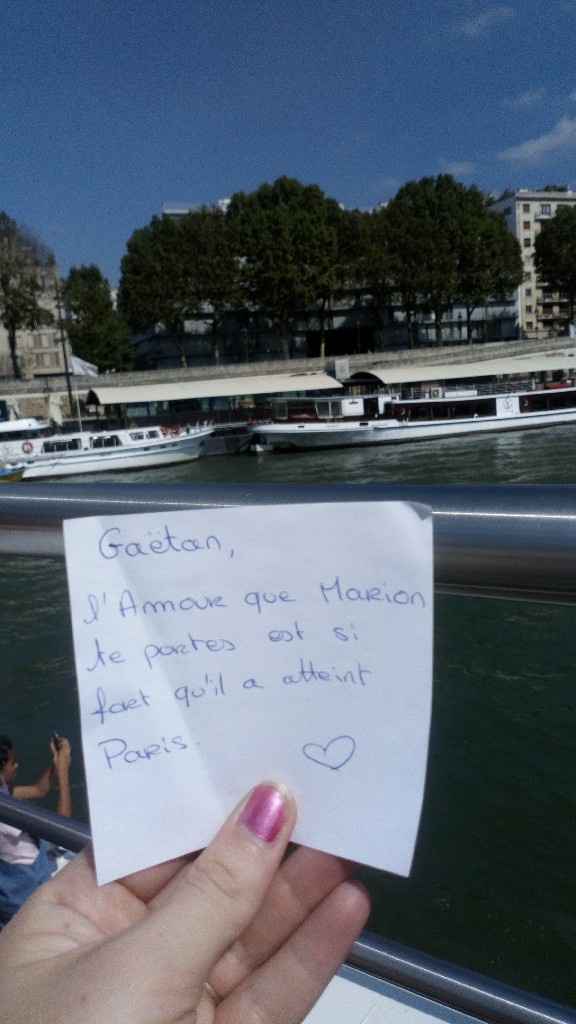 Gaëtan,
l'Amour que Marion
te portes est si
fort qu'il a atteint
Paris.